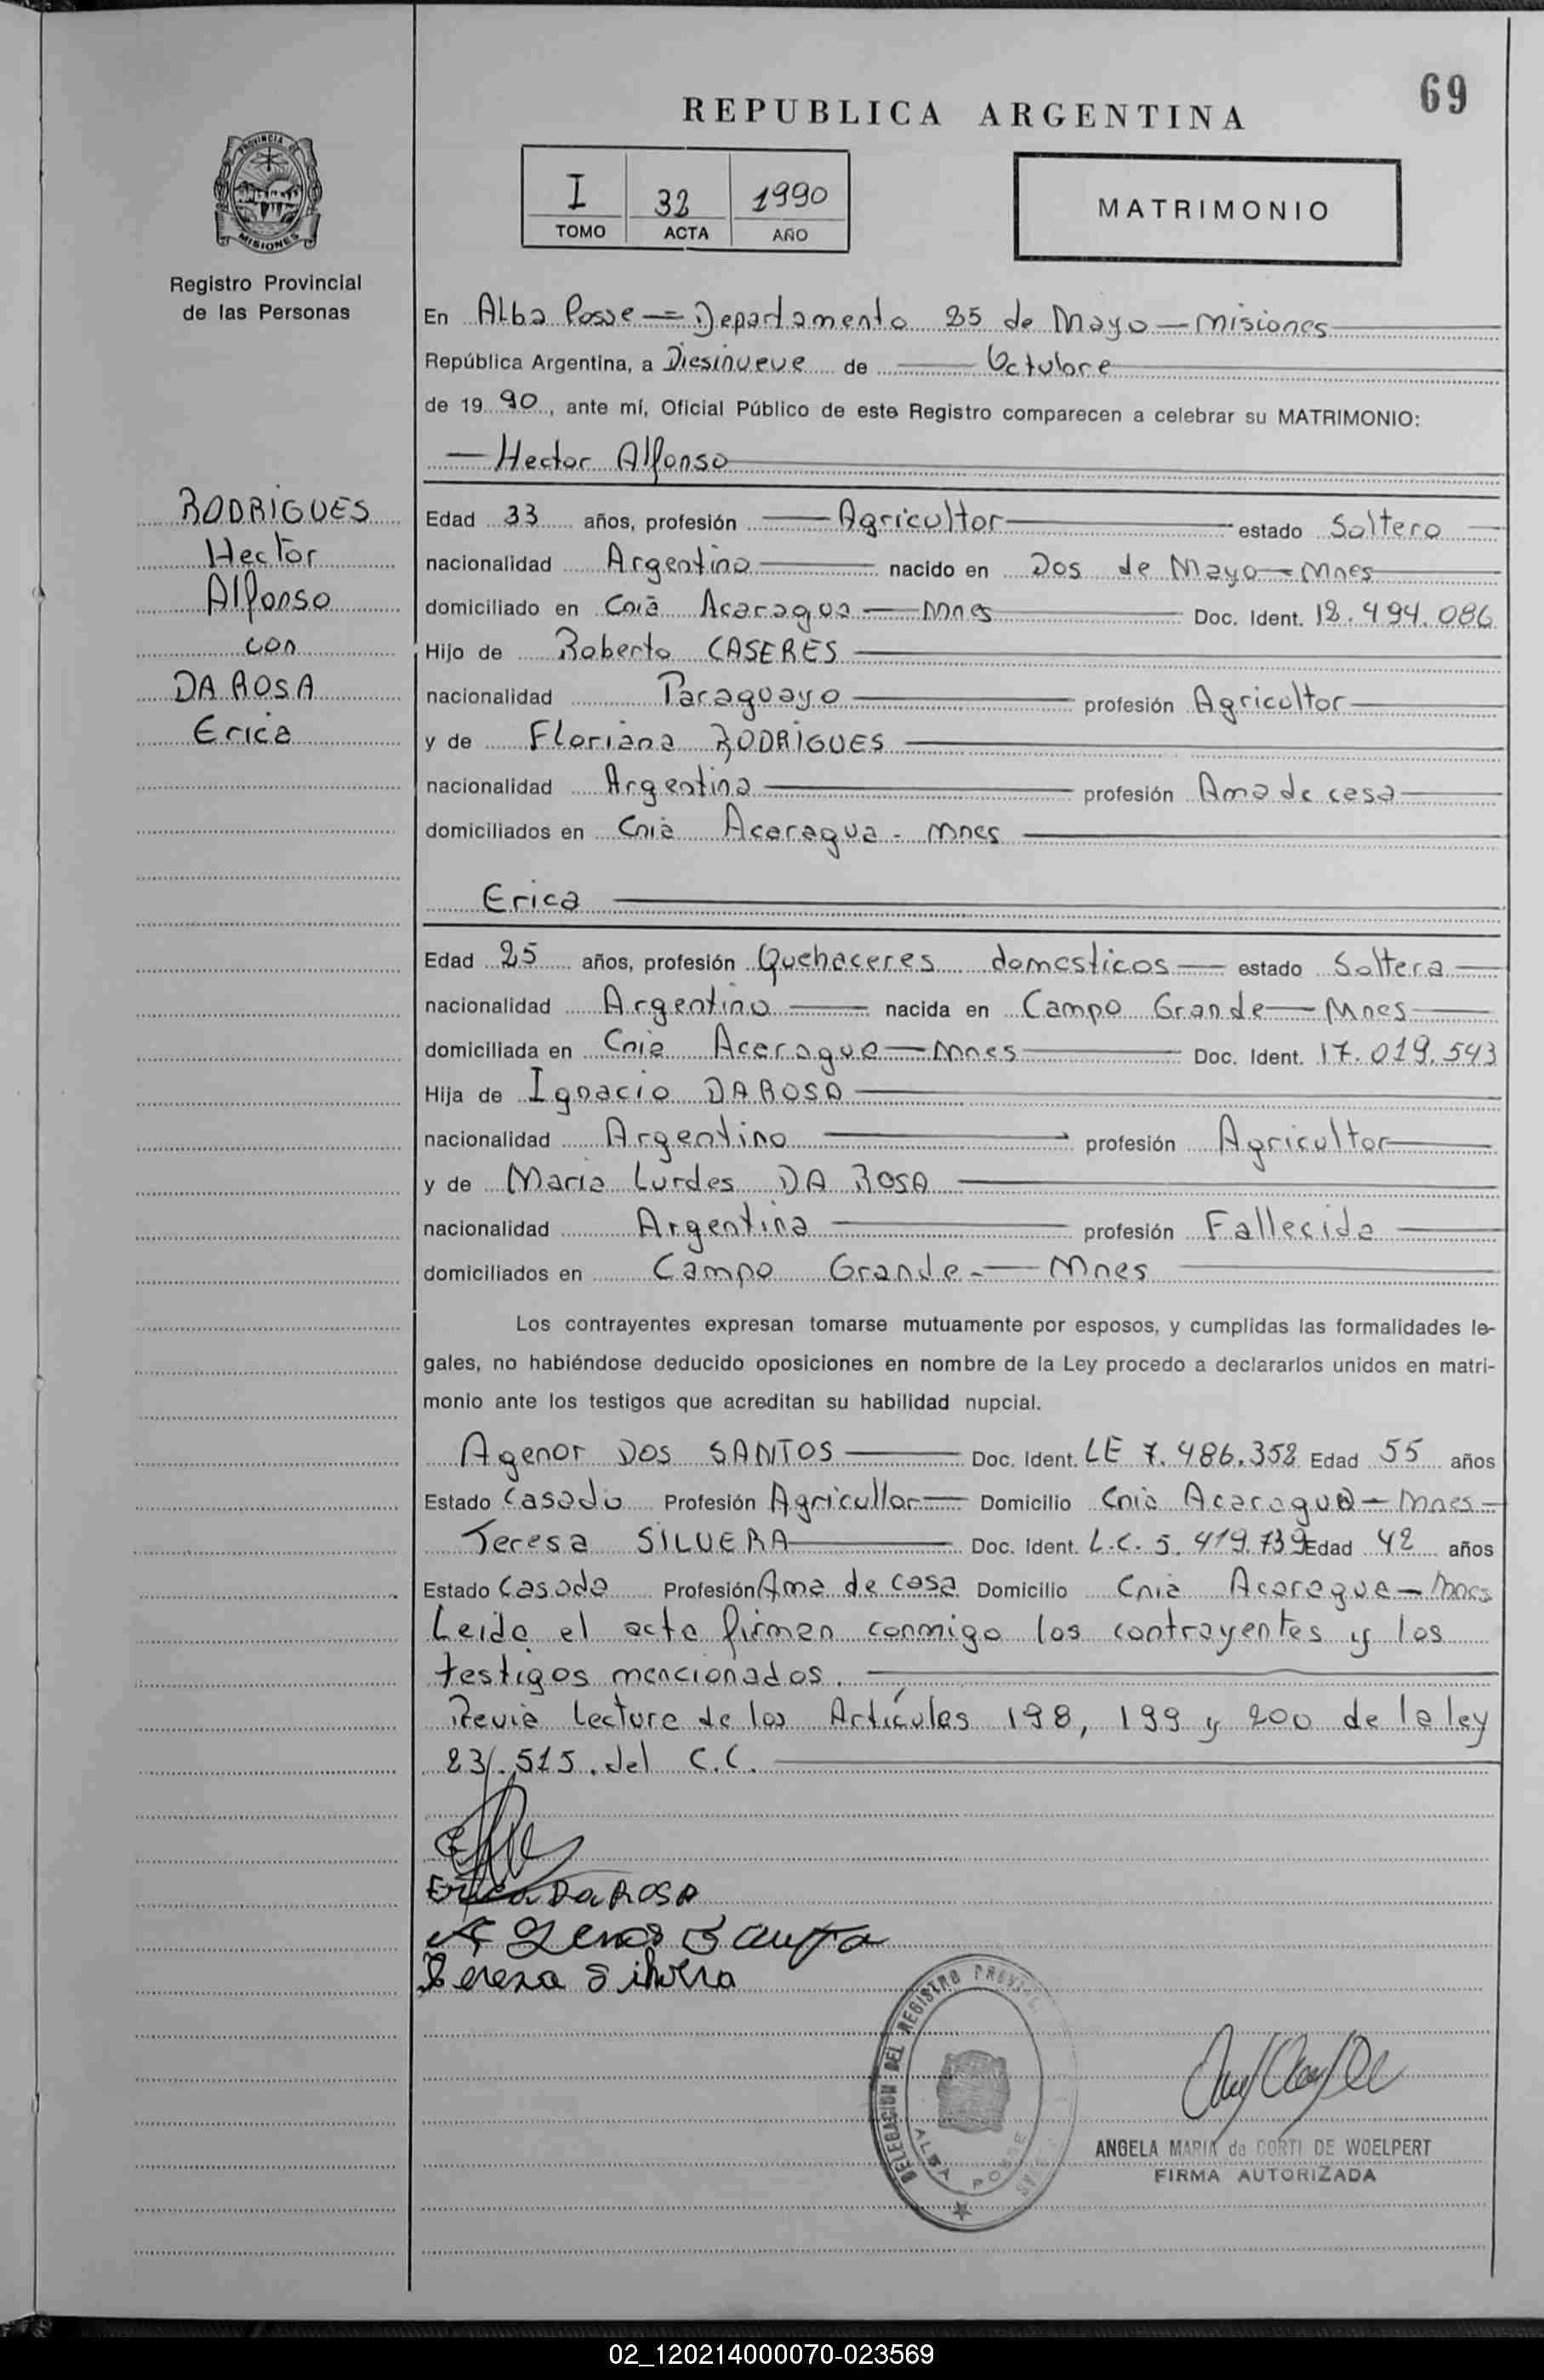 69
REPUBLICA ARGENTINA
PROVINCIA DE
MISIONES
Registro Provincial
de las Personas
I 32 1990
TOMO ACTA AÑO
MATRIMONIO
En Alba Posse = Departamento 25 de Mayo — Misiones
República Argentina, a Diesinueve de — Octubre
de 19 90, ante mí, Oficial Público de este Registro comparecen a celebrar su MATRIMONIO:
— Hector Alfonso
RODRIGUES
Hector
Alfonso
con
DA ROSA
Erica
Edad 33 años, profesión — Agricultor — estado Soltero —
nacionalidad Argentino — nacido en Dos de Mayo — Mnes
domiciliado en Cnia Acaragua — Mnes Doc. Ident. 12.494.086
Hijo de Roberto CASERES
nacionalidad Paraguayo profesión Agricultor
y de Floriana RODRIGUES
nacionalidad Argentina profesión Ama de casa
domiciliados en Cnia Acaragua - Mnes
Erica
Edad 25 años, profesión Quehaceres domesticos — estado Soltera —
nacionalidad Argentina — nacida en Campo Grande — Mnes
domiciliada en Cnia Acaragua — Mnes Doc. Ident. 17.019.543
Hija de Ignacio DA ROSA
nacionalidad Argentino profesión Agricultor
y de Maria Lurdes DA ROSA
nacionalidad Argentina profesión Fallecida
domiciliados en Campo Grande - Mnes
Los contrayentes expresan tomarse mutuamente por esposos, y cumplidas las formalidades le-
gales, no habiéndose deducido oposiciones en nombre de la Ley procedo a declararlos unidos en matri-
monio ante los testigos que acreditan su habilidad nupcial.
Agenor DOS SANTOS Doc. Ident. LE 7.486.352 Edad 55 años
Estado Casado Profesión Agricultor — Domicilio Cnia Acaragua — Mnes —
Teresa SILVERA Doc. Ident. L.C. 5.419.739 Edad 42 años
Estado Casada Profesión Ama de casa Domicilio Cnia Acaragua — Mnes
Leida el acta firman conmigo los contrayentes y los
testigos mencionados.
Previa lectura de los Artículos 198, 199 y 200 de la ley
23.515. del C.C.
Erica Da ROSA
Tereza Silvera
DELEGACION DEL REGISTRO PROVINCIAL
ALBA POSSE
ANGELA MARIA de CORTI DE WOELPERT
FIRMA AUTORIZADA
02_120214000070-023569